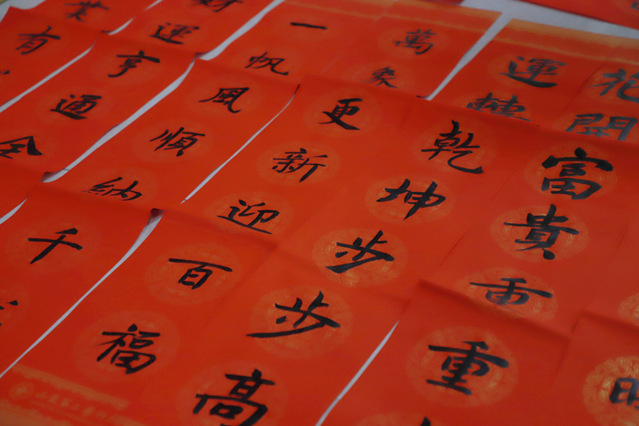 花開富貴重重
運轉乾坤步步高
萬象更新迎百福
一帆風順納千
運亨通全
有